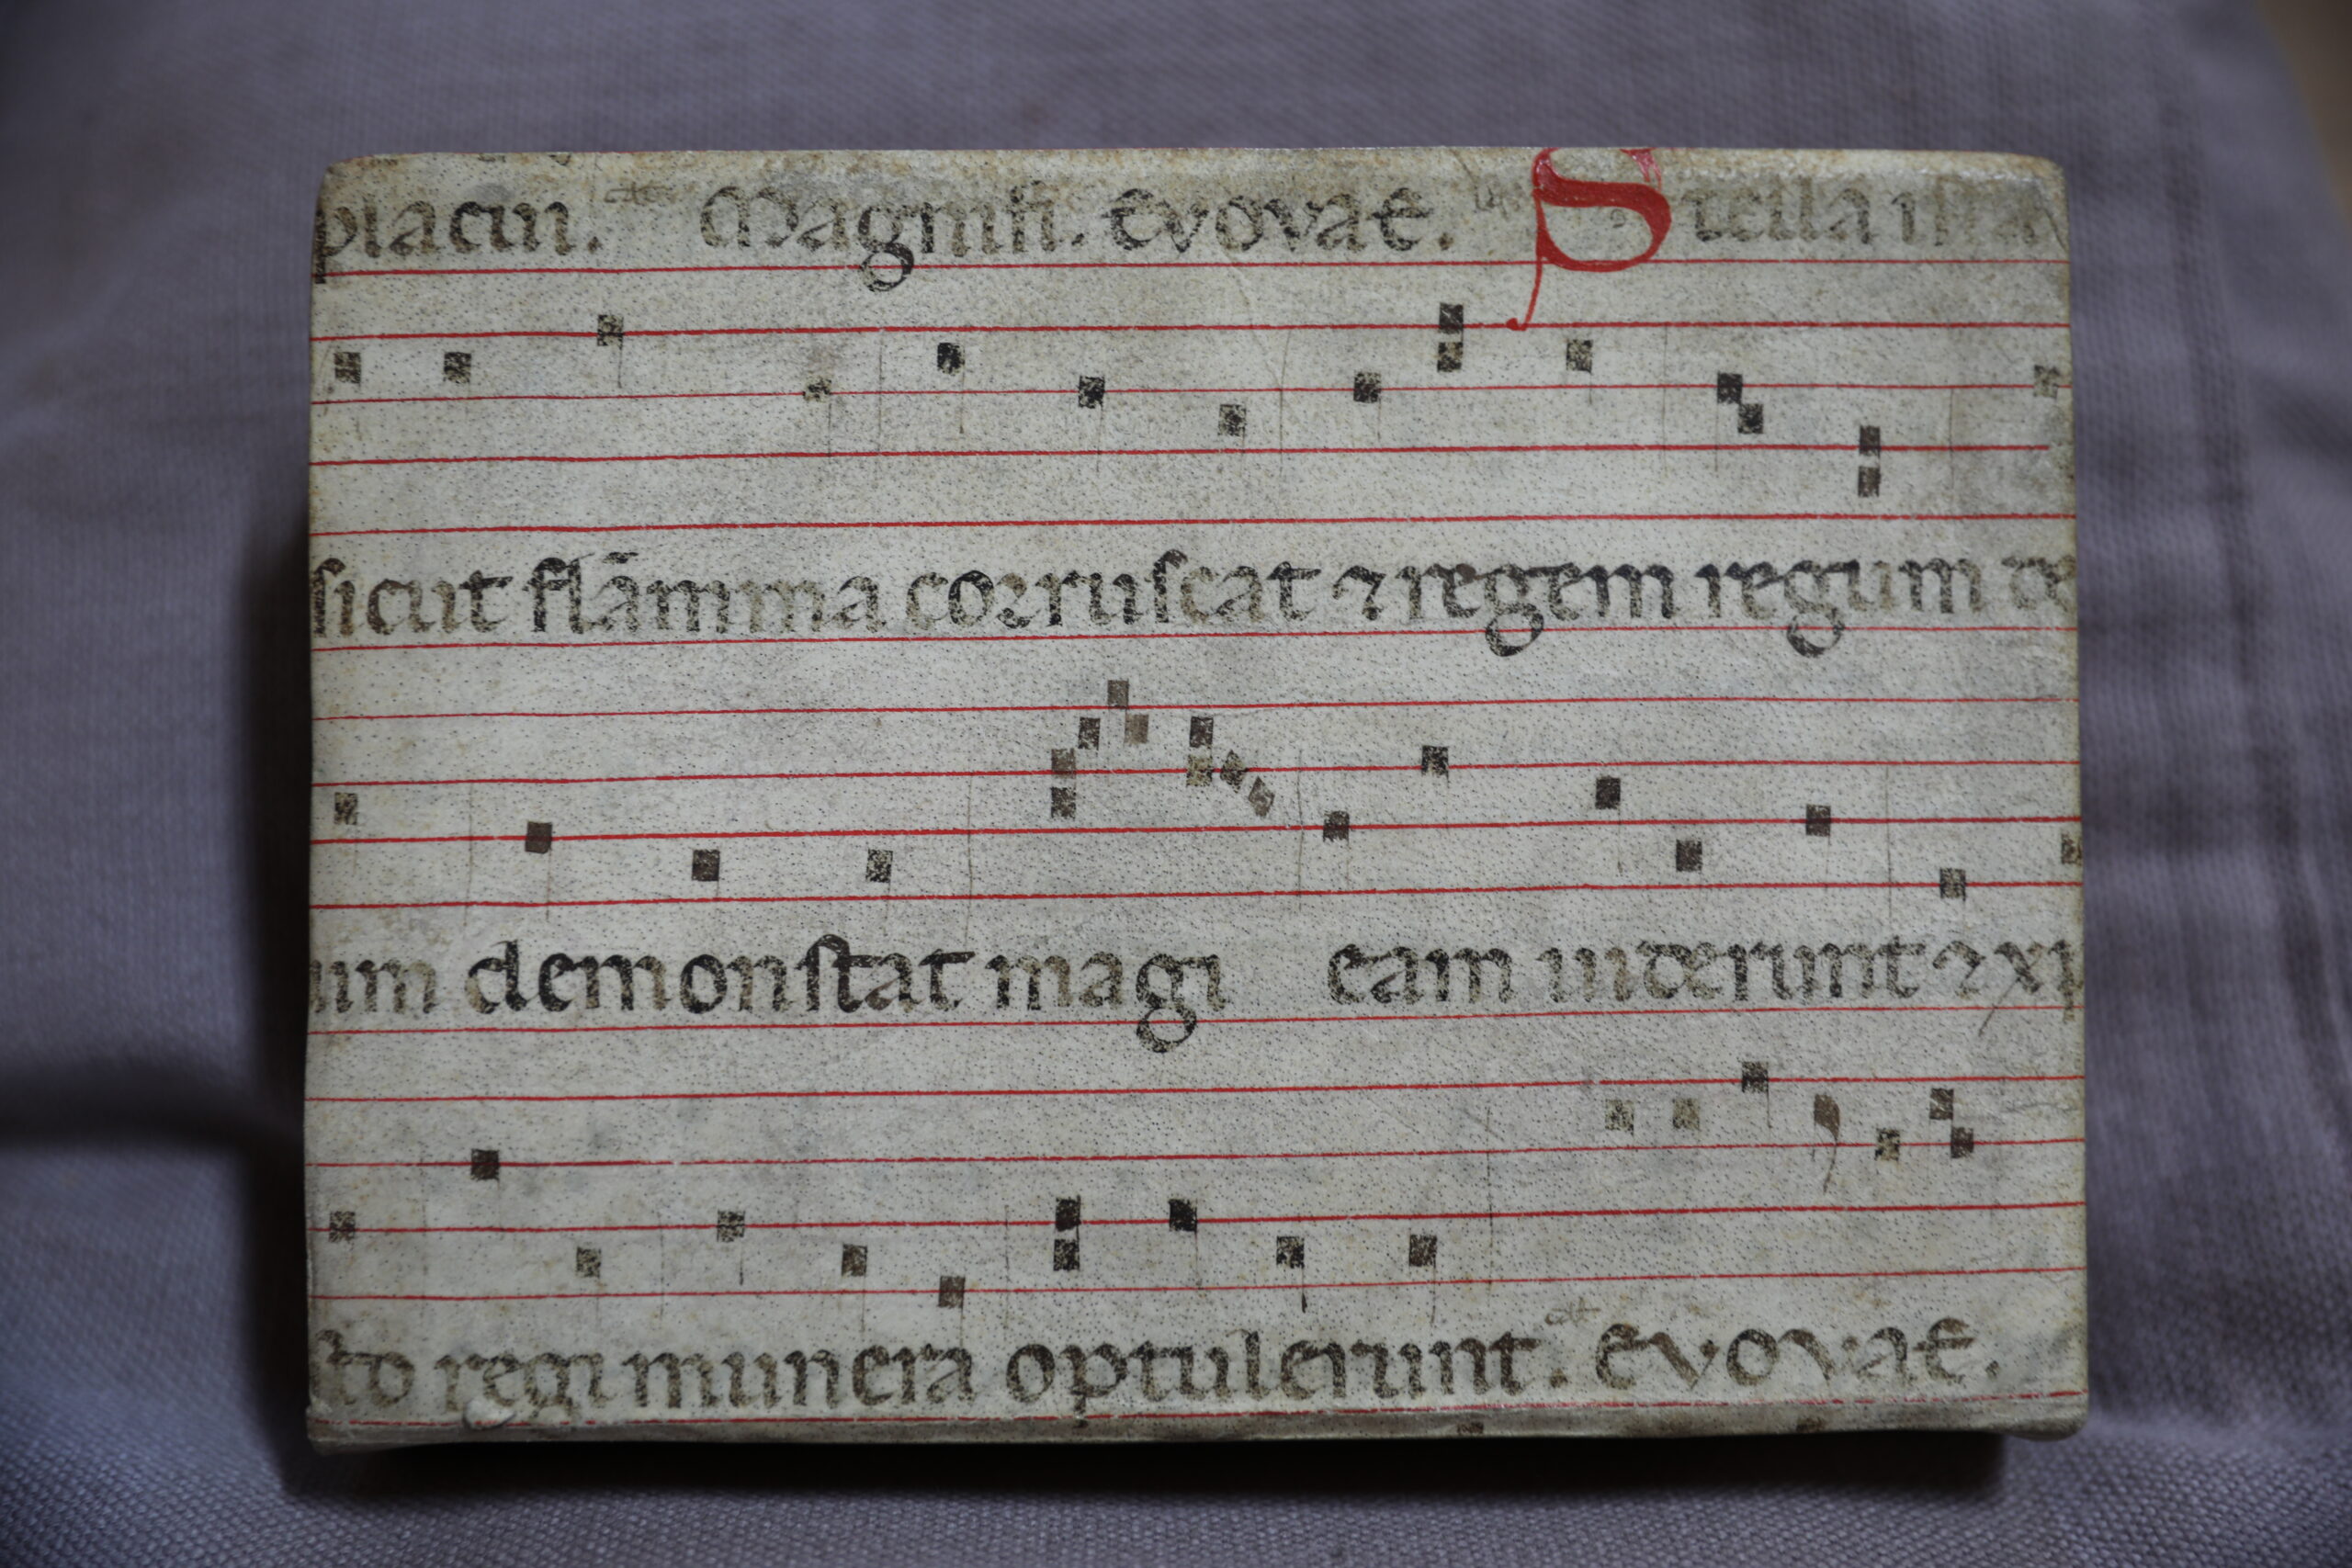 placui. Magnifi. Evovae. Stella ista
sicut flāmma corruscat ⁊ regem regum de
um demonstat magi eam uiderunt ⁊ xp
sto regi munera optulerunt. Evovae.